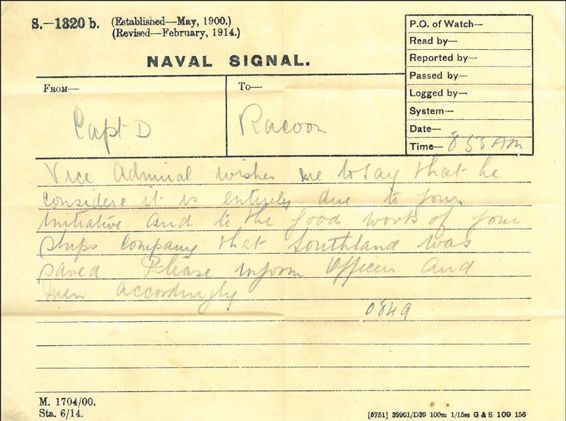 S.—1320 b. (Established—May, 1900.)
(Revised—February, 1914.)
NAVAL SIGNAL.
P.O. of Watch—
Read by—
Reported by—
Passed by—
Logged by—
System—
Date—
Time— 855 AM
FROM—
Capt D
TO—
Racoon
Vice Admiral wishes me to say that he
considers it is entirely due to your
initiative and to the good work of your
ships company that Southland was
saved Please inform Officers and
men accordingly
0849
M. 1704/00.
Sta. 6/14.
[5751] 39901/D39 100m 1/15es G & S 109 156